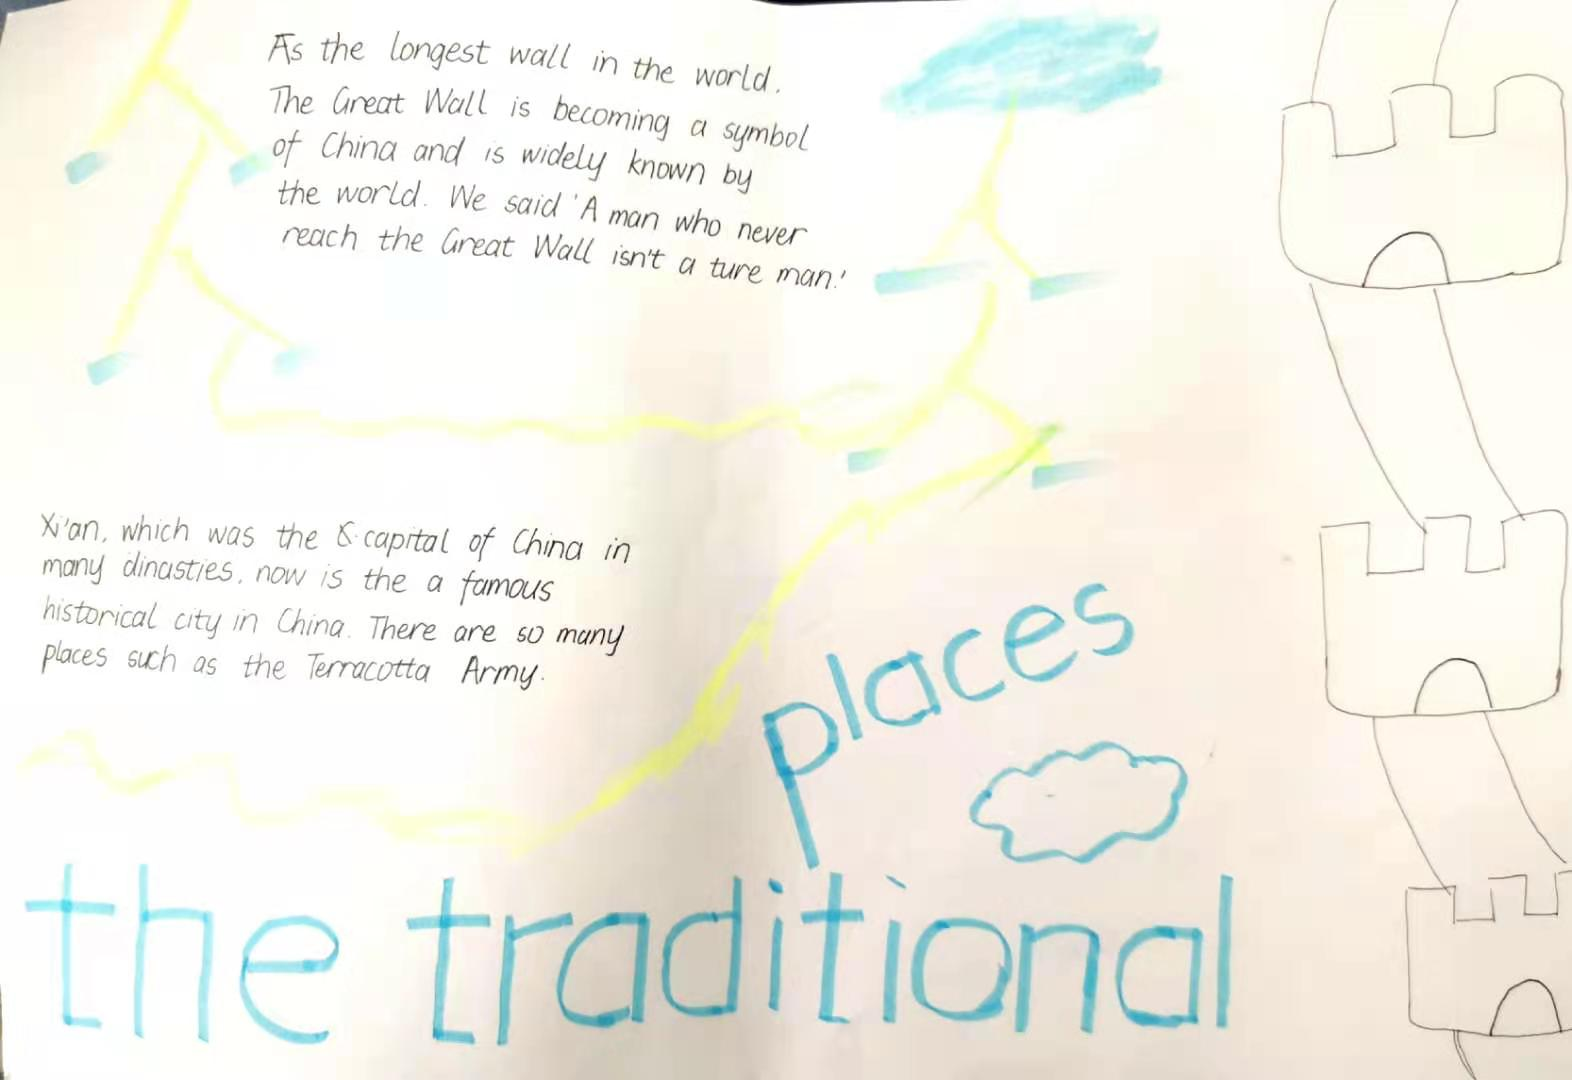 As the longest wall in the world.
The Great Wall is becoming a symbol
of China and is widely known by
the world. We said 'A man who never
reach the Great Wall isn't a ture man.'
Xi'an, which was the capital of China in
many dinasties, now is the a famous
historical city in China. There are so many
places such as the Terracotta Army.
places
the traditional